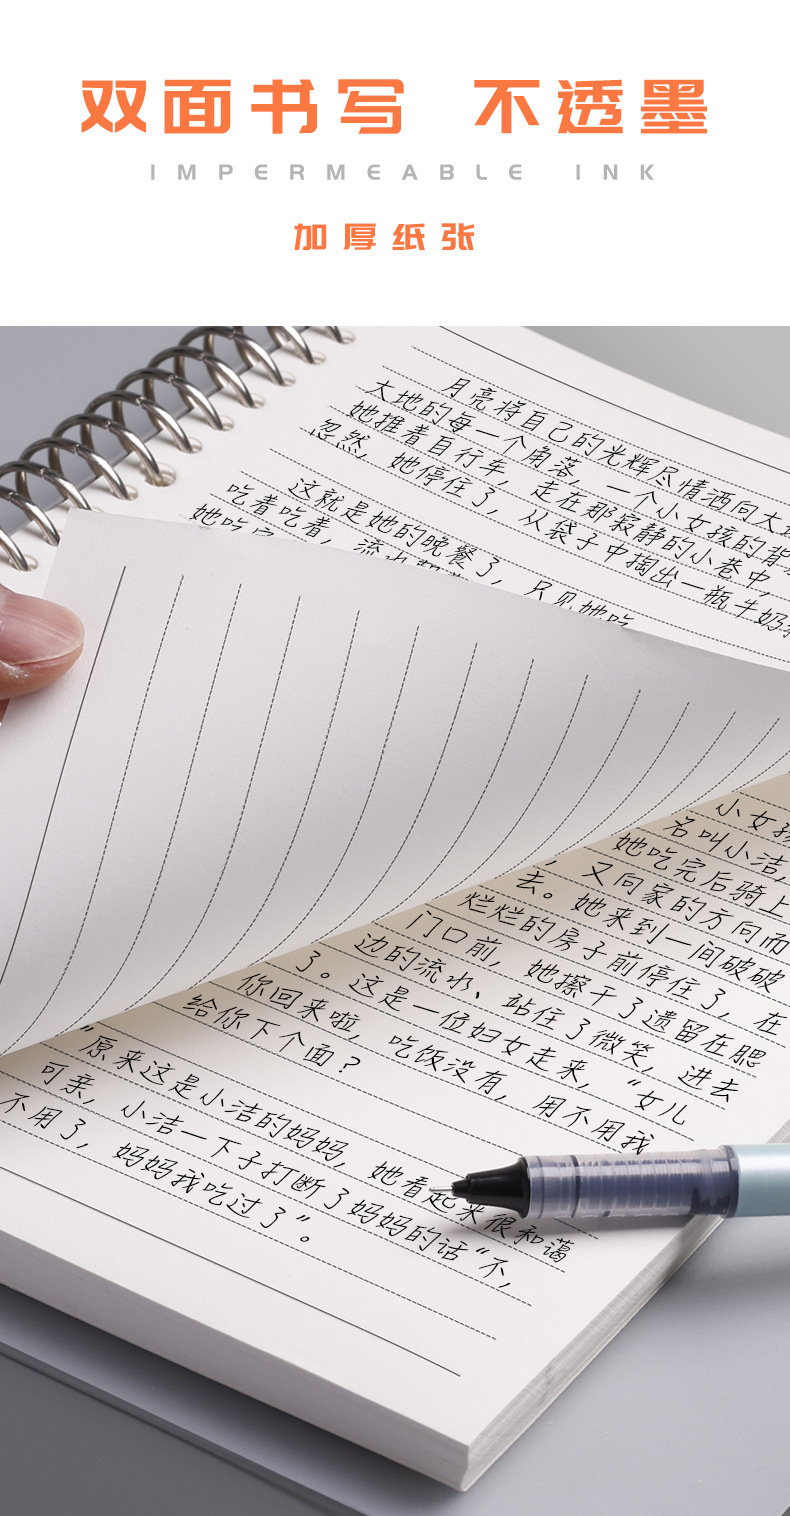 双面书写 不透墨
IMPERMEABLE INK
加厚纸张
月亮将自己的光辉尽情洒向大地
大地的每一个角落，一个小女孩的背
她推着自行车，走在那寂静的小巷中，
忽然，她停住了，从袋子中掏出一瓶牛奶
这就是她的晚餐了，只见她吃
吃着吃着，流水
她吃完
小女孩
名叫小洁
她吃完后骑上
，又向家的方向而
去。她来到一间破破
烂烂的房子前停住了，在
门口前，她擦干了遗留在腮
边的流水、站住了微笑，进去
了。这是一位妇女走来，“女儿
你回来啦，吃饭没有，用不用我
给你下个面？
“原来这是小洁的妈妈，她看起来很和蔼
可亲，小洁一下子打断了妈妈的话“不，
不用了，妈妈我吃过了”。